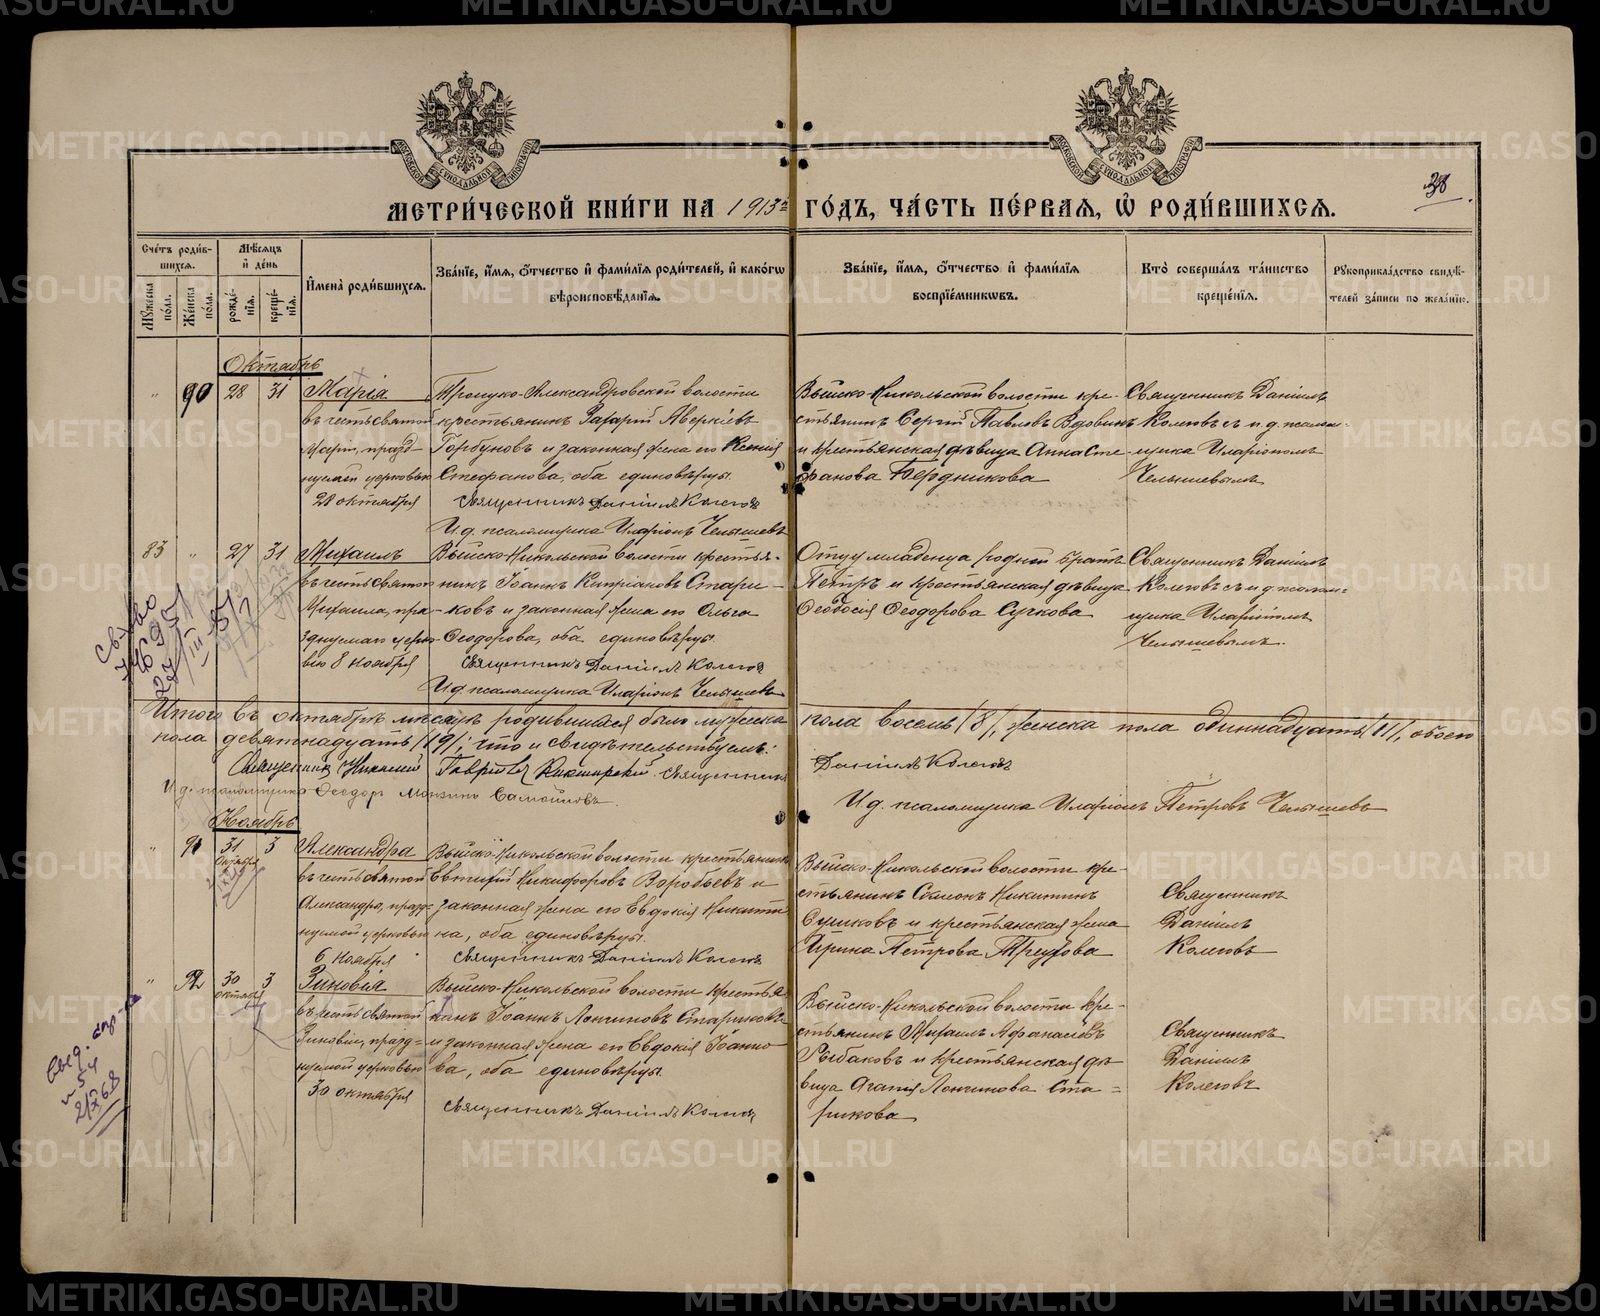 МЕТРИ́ЧЕСКОЙ КНИ́ГИ НА 1913й ГО́ДЪ, ЧА́СТЬ ПЕ́РВАЯ, Ѡ҆ РОДИ́ВШИХСЯ.
38
Сче́тъ роди́в-
шихся.
Му́жеска по́ла.
Же́нска по́ла.
Мѣ́сяцъ
и҆ де́нь
рожде́-
нїѧ.
креще́-
нїѧ.
И҆мена̀ роди́вшихся.
Зва́нїе, и҆́мя, ѻ҆́тчество и҆ фами́лїя роди́телей, и҆ како́гѡ
вѣроисповѣ́данїя.
Зва́нїе, и҆́мя, ѻ҆́тчество и҆ фами́лїя
воспрїе́мникѡвъ.
Кто̀ соверша́лъ та́инство
креще́нїя.
Рꙋкоприкла́дство свидѣ́-
телей за́писи по жела́нїю.
Октябрь
90 28 31 Марія
въ честь святой
Маріи, празд-
нуемой церковью
28 октября
Троицко-Александровской волости
крестьянинъ Захарій Аверкіевъ
Горбуновъ и законная жена его Ксенія
Стефанова, оба единовѣрцы.
Священникъ Даніилъ Колеговъ
И.д. псаломщика Иларіонъ Челышевъ
Выйско-Никольской волости кре-
стьянинъ Сергій Павловъ Вдовинъ
и крестьянская дѣвица Анна Сте-
фанова Бердникова
Священникъ Даніилъ
Колеговъ съ и.д. псалом-
щика Иларіономъ
Челышевымъ
83 " 27 31 Михаилъ
въ честь святого
Михаила, пра-
зднуемаго церко-
вію 8 ноября
Выйско-Никольской волости крестья-
нинъ Іоаннъ Кипріановъ Стари-
ковъ и законная жена его Ольга
Ѳеодорова, оба единовѣрцы.
Священникъ Даніилъ Колеговъ
И.д. псаломщика Иларіонъ Челышевъ
Отцу младенца родной братъ
Петръ и крестьянская дѣвица
Ѳеодосія Ѳеодорова Сучкова
Священникъ Даніилъ
Колеговъ съ и.д. псалом-
щика Иларіономъ
Челышевымъ.
Св-во
27/III
Итого въ октябрѣ мѣсяцѣ родившихся было мужеска пола восемь /8/, женска пола одиннадцать /11/, обоего
пола девятнадцать /19/; что и свидѣтельствуемъ:
Священникъ Николай Гавріилъ Священникъ Даніилъ Колеговъ
И.д. псаломщика Ѳеодоръ Самойловъ.
И.д. псаломщика Иларіонъ Петровъ Челышевъ
Ноябрь
" 91 31 октября 3 Александра
въ честь святой
Александры, празд-
нуемой церковью
6 ноября
Выйско-Никольской волости крестьянинъ
Евтихій Никифоровъ Воробьевъ и
законная жена его Евдокія Никити-
на, оба единовѣрцы.
Священникъ Даніилъ Колеговъ
Выйско-Никольской волости кре-
стьянинъ Симеонъ Никитинъ
и крестьянская жена
Ирина Петрова
Священникъ
Даніилъ
Колеговъ
" 92 30 октября 3 Зиновія
въ честь святой
Зиновіи, празд-
нуемой церковью
30 октября
Выйско-Никольской волости крестья-
нинъ Іоаннъ Лонгиновъ Стариковъ
и законная жена его Евдокія Іоанно-
ва, оба единовѣрцы.
Священникъ Даніилъ Колеговъ
Выйско-Никольской волости кре-
стьянинъ Михаилъ Аѳанасіевъ
Рыбаковъ и крестьянская дѣ-
вица Агапія Лонгинова Ста-
рикова
Священникъ
Даніилъ
Колеговъ
№ 54
METRIKI.GASO-URAL.RU